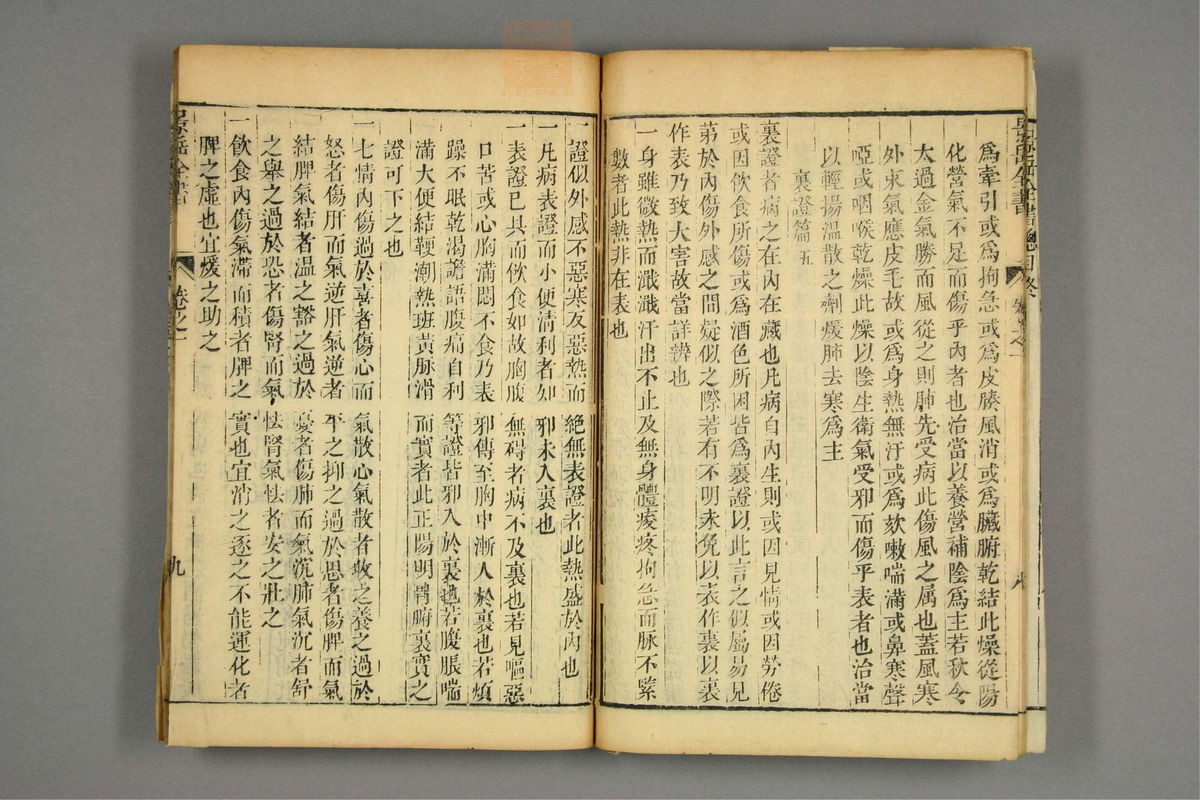 為牽引或為拘急或為皮膚風消或為臟腑乾結此燥從陽
化營氣不足而傷乎內者也治當以養營補陰為主若秋令
太過金氣勝而風從之則肺先受病此傷風之属也蓋風寒
外束氣應皮毛故或為身熱無汗或為欬嗽喘滿或鼻塞聲
啞或咽喉乾燥此燥以陰生衛氣受邪而傷乎表者也治當
以輕揚温散之劑煖肺去寒為主
裏證篇 五
裏證者病之在內在藏也凡病自內生則或因七情或因勞倦
或因飲食所傷或為酒色所困皆為裏證以此言之似屬易見
第於內傷外感之間疑似之際若有不明未免以表作裏以裏
作表乃致大害故當詳辨也
一身雖微熱而濈濈汗出不止及無身體痠疼拘急而脉不緊
數者此熱非在表也
一證似外感不惡寒反惡熱而絶無表證者此熱盛於內也
一凡病表證而小便清利者知邪未入裏也
一表證已具而飲食如故胸腹無碍者病不及裏也若見嘔惡
口苦或心胸滿悶不食乃表邪傳至胸中漸入於裏也若煩
躁不眠乾渴譫語腹痛自利等證皆邪入於裏也若腹脹喘
滿大便結鞕潮熱斑黃脉滑而實者此正陽明胃腑裏實之
證可下之也
一七情內傷過於喜者傷心而氣散心氣散者收之養之過於
怒者傷肝而氣逆肝氣逆者平之抑之過於思者傷脾而氣
結脾氣結者温之豁之過於憂者傷肺而氣沉肺氣沉者舒
之舉之過於恐者傷腎而氣怯腎氣怯者安之壯之
一飲食內傷氣滯而積者脾之實也宜消之逐之不能運化者
脾之虛也宜煖之助之
景岳全書
卷之一
九